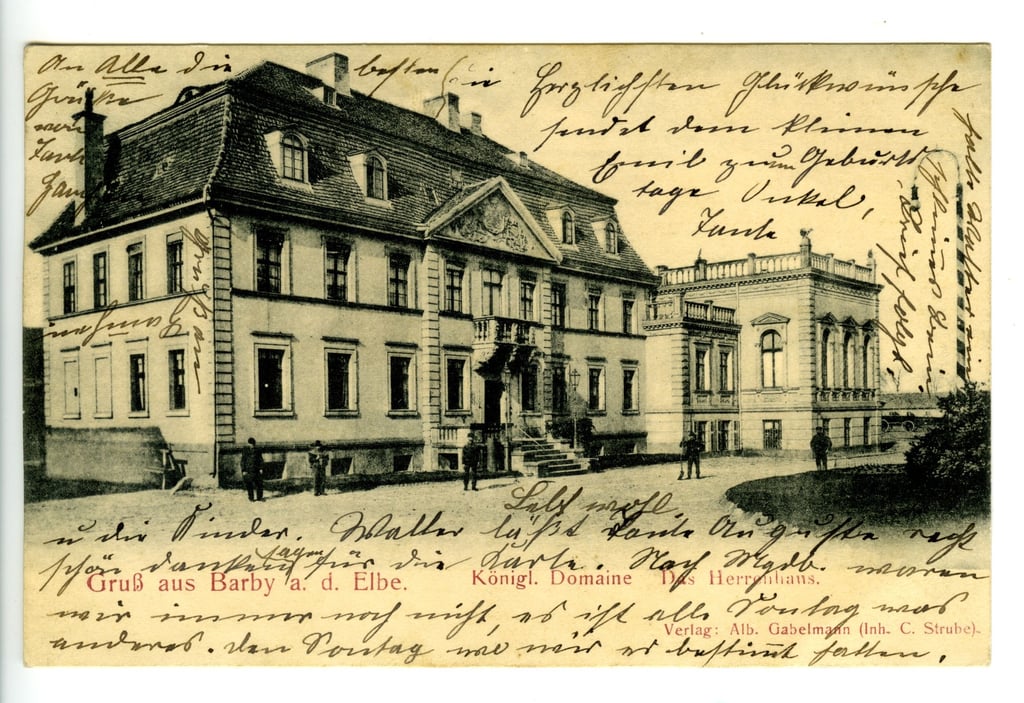 An Alle die besten
Grüße
von
Tante
Die Herzlichsten Glückwünsche
sendet dem kleinen
Emil zum Geburts
tage Onkel,
Tante
u die Kinder. Walter läßt Tante Auguste recht
schön danken sagen für die Karte. Nach Mgdb. waren
wir immer noch nicht, es ist alle Sonntag was
anderes. den Sonntag wo wir es bestimmt hatten,
Lebt wohl.
Brief folgt.
Gruß aus Barby a. d. Elbe.
Königl. Domaine Das Herrenhaus.
Verlag: Alb. Gabelmann (Inh. C. Strube).